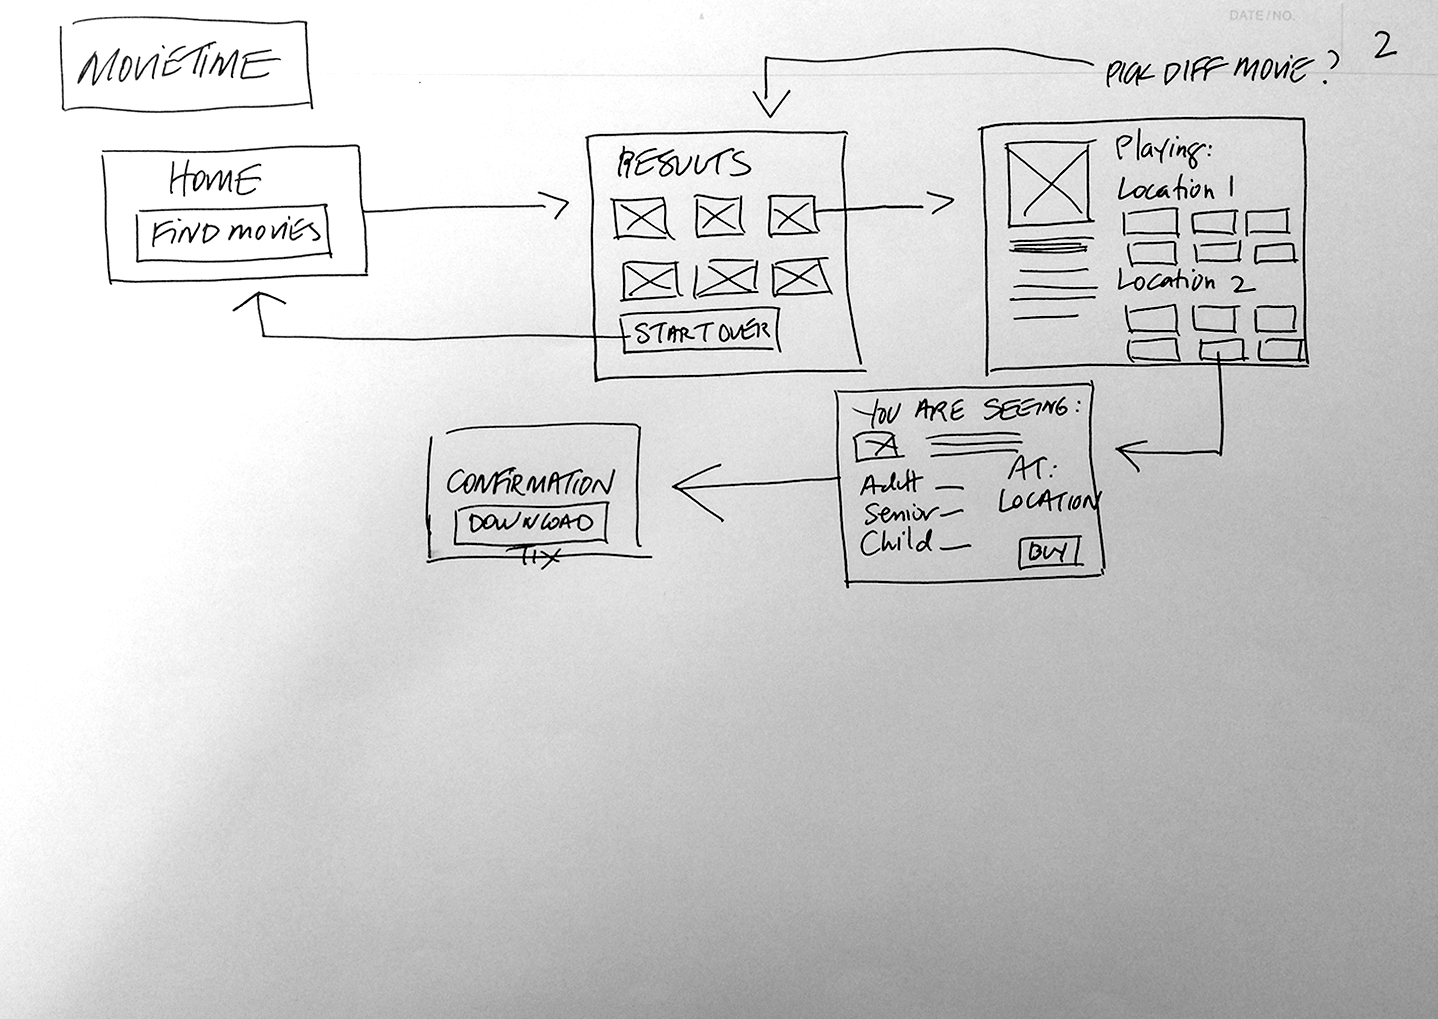 DATE/NO.
2
MOVIETIME
PICK DIFF MOVIE?
HOME
FIND MOVIES
RESULTS
START OVER
Playing:
Location 1
Location 2
YOU ARE SEEING:
AT:
LOCATION
Adult
Senior
Child
BUY
CONFIRMATION
DOWNLOAD
TIX